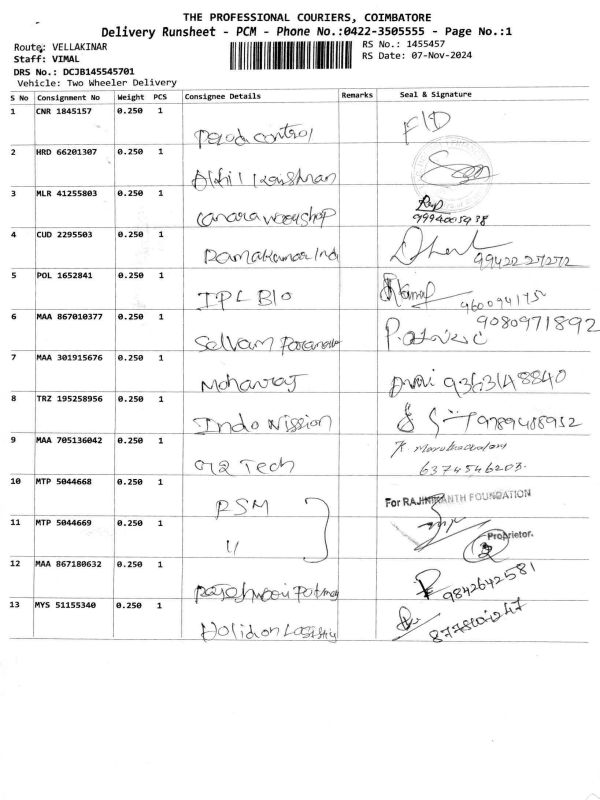 THE PROFESSIONAL COURIERS, COIMBATORE
Delivery Runsheet - PCM - Phone No.:0422-3505555 - Page No.:1
Route: VELLAKINAR
RS No.: 1455457
Staff: VIMAL
RS Date: 07-Nov-2024
DRS No.: DCJB145545701
Vehicle: Two Wheeler Delivery
S No Consignment No Weight PCS Consignee Details Remarks Seal & Signature
1 CNR 1845157 0.250 1 control F/D
2 HRD 66201307 0.250 1 Akhil Krishnan
3 MLR 41255803 0.250 1 Canara workshop
9994005938
4 CUD 2295503 0.250 1 Ramakumar Ind Dhar
99422 27272
5 POL 1652841 0.250 1 IPL Bio
6 MAA 867010377 0.250 1 Selvam 9080971892
7 MAA 301915676 0.250 1 Mohanraj 9363148840
8 TRZ 195258956 0.250 1 Indo Mission 9789488952
9 MAA 705136042 0.250 1 Tech
6374546203.
10 MTP 5044668 0.250 1 RSM For RAJINIKANTH FOUNDATION
11 MTP 5044669 0.250 1 " Proprietor.
12 MAA 867180632 0.250 1 Rajeshwari 9842642581
13 MYS 51155340 0.250 1